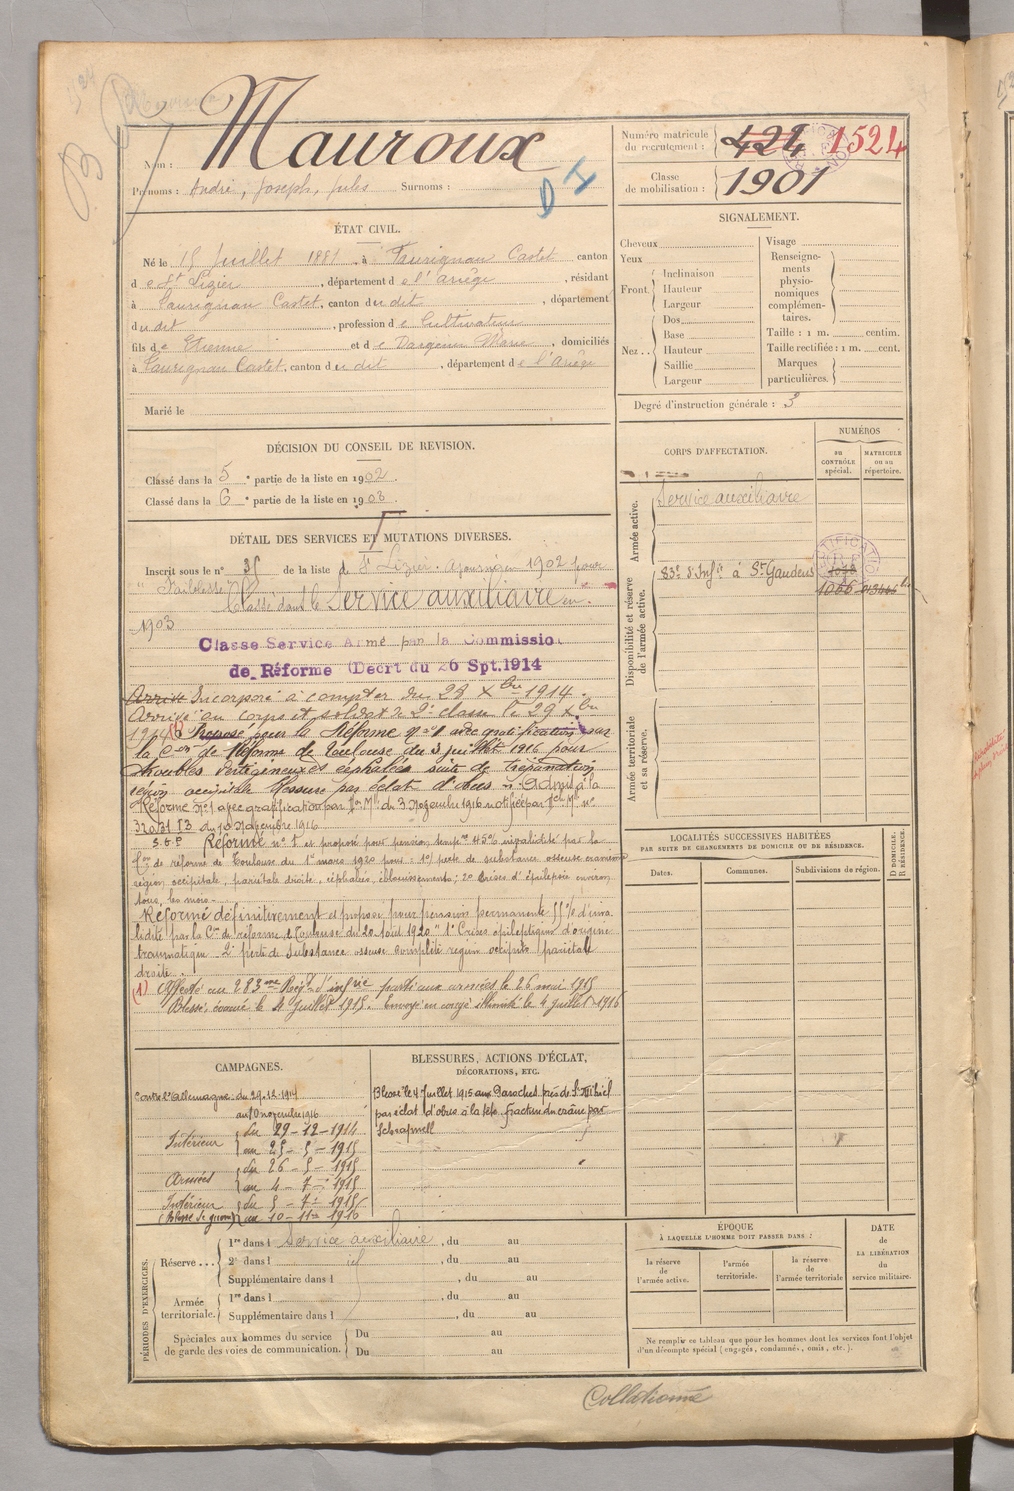 Nom : Mauroux
Prénoms : André, Joseph, Jules Surnoms :
D I
Numéro matricule du recrutement : 424 1524
Classe de mobilisation : 1901
ÉTAT CIVIL.
Né le 15 Juillet 1881, à Taurignan Castet canton
d e St Lizier, département d e l'Ariège, résidant
à Taurignan Castet, canton du dit, département
du dit, profession d e Cultivateur
fils d e Etienne et d e Dargein Marie, domiciliés
à Taurignan Castet, canton du dit, département d e l'Ariège
Marié le
SIGNALEMENT.
Cheveux
Yeux
Front. Inclinaison
Hauteur
Largeur
Nez .. Dos
Base
Hauteur
Saillie
Largeur
Visage
Renseigne-
ments
physio-
nomiques
complémen-
taires.
Taille : 1 m. centim.
Taille rectifiée : 1 m. cent.
Marques
particulières.
Degré d'instruction générale : 3
DÉCISION DU CONSEIL DE REVISION.
Classé dans la 5e partie de la liste en 1902.
Classé dans la 6e partie de la liste en 1903.
DÉTAIL DES SERVICES ET MUTATIONS DIVERSES.
Inscrit sous le n° 35 de la liste de St Lizier. Ajourné en 1902 pour
"Faiblesse" Classé dans le Service auxiliaire en
1903
Classe Service Armé par la Commission
de Réforme (Decrt du 26 Spt. 1914
Arrivé Incorporé à compter du 28 Xbre 1914.
Arrivé au corps et soldat de 2e classe le 29 Xbre
1914 (1) Proposé pour la Réforme n° 1 avec gratification par
la Con de Réforme de Toulouse du 3 juillet 1916 pour
troubles vertigineux céphalées suite de trépanation
région occipitale blessure par éclat d'obus. Admis à la
Réforme N° 1 avec gratification par Don Mlle du 3 Novembre 1916 notifiée par n°
du 10 Novembre 1916
Réformé n° 1 et proposé pour pension temp 45% invalidité par la
Con de réforme de Toulouse du 1er mars 1920 pour : 1° perte de substance osseuse cranienne
région occipitale, pariétale droite, céphalées, éblouissements ; 2° crises d'épilepsie environ
tous les mois.
Réformé définitivement et proposé pour pension permanente 55% d'inva-
lidité par la Con de réforme de Toulouse du 20 août 1920 "1° Crises épileptiques d'origine
traumatique 2° perte de substance osseuse complète région occipito pariétale
droite.
(1) Affecté au 283me Régt d'infie parti aux armées le 26 mai 1915
Blessé, évacué le 4 Juillet 1915. Envoyé en congé illimité le 4 juillet 1916
CORPS D'AFFECTATION.
NUMÉROS
au CONTRÔLE spécial.
MATRICULE ou au répertoire.
Armée active.
Service auxiliaire
Disponibilité et réserve de l'armée active.
83e d'Infie à St Gaudens
1066
Armée territoriale et sa réserve.
LOCALITÉS SUCCESSIVES HABITÉES
PAR SUITE DE CHANGEMENTS DE DOMICILE OU DE RÉSIDENCE.
Dates. Communes. Subdivisions de région.
D DOMICILE.
R RÉSIDENCE.
CAMPAGNES.
Contre l'Allemagne : du 29.12.1914
au 10 novembre 1916
Intérieur du 29-12-1914
au 25-5-1915
Armées du 26-5-1915
au 4-7-1915
Intérieur du 5-7-1915
(Blessé de guerre) au 10-11-1916
BLESSURES, ACTIONS D'ÉCLAT,
DÉCORATIONS, ETC.
Blessé le 4 Juillet 1915 aux Paroches près de St Mihiel
par éclat d'obus à la tête fracture du crâne par
Schrapnell
PÉRIODES D'EXERCICES.
Réserve ... 1re dans l Service auxiliaire, du au
2e dans l, du au
Supplémentaire dans l, du au
Armée territoriale. 1re dans l, du au
Supplémentaire dans l, du au
Spéciales aux hommes du service Du au
de garde des voies de communication. Du au
ÉPOQUE
À LAQUELLE L'HOMME DOIT PASSER DANS :
la réserve de l'armée active.
l'armée territoriale.
la réserve de l'armée territoriale
DATE
de
LA LIBÉRATION
du
service militaire.
Ne remplir ce tableau que pour les hommes dont les services font l'objet
d'un décompte spécial (engagés, condamnés, omis, etc.).
Collationné